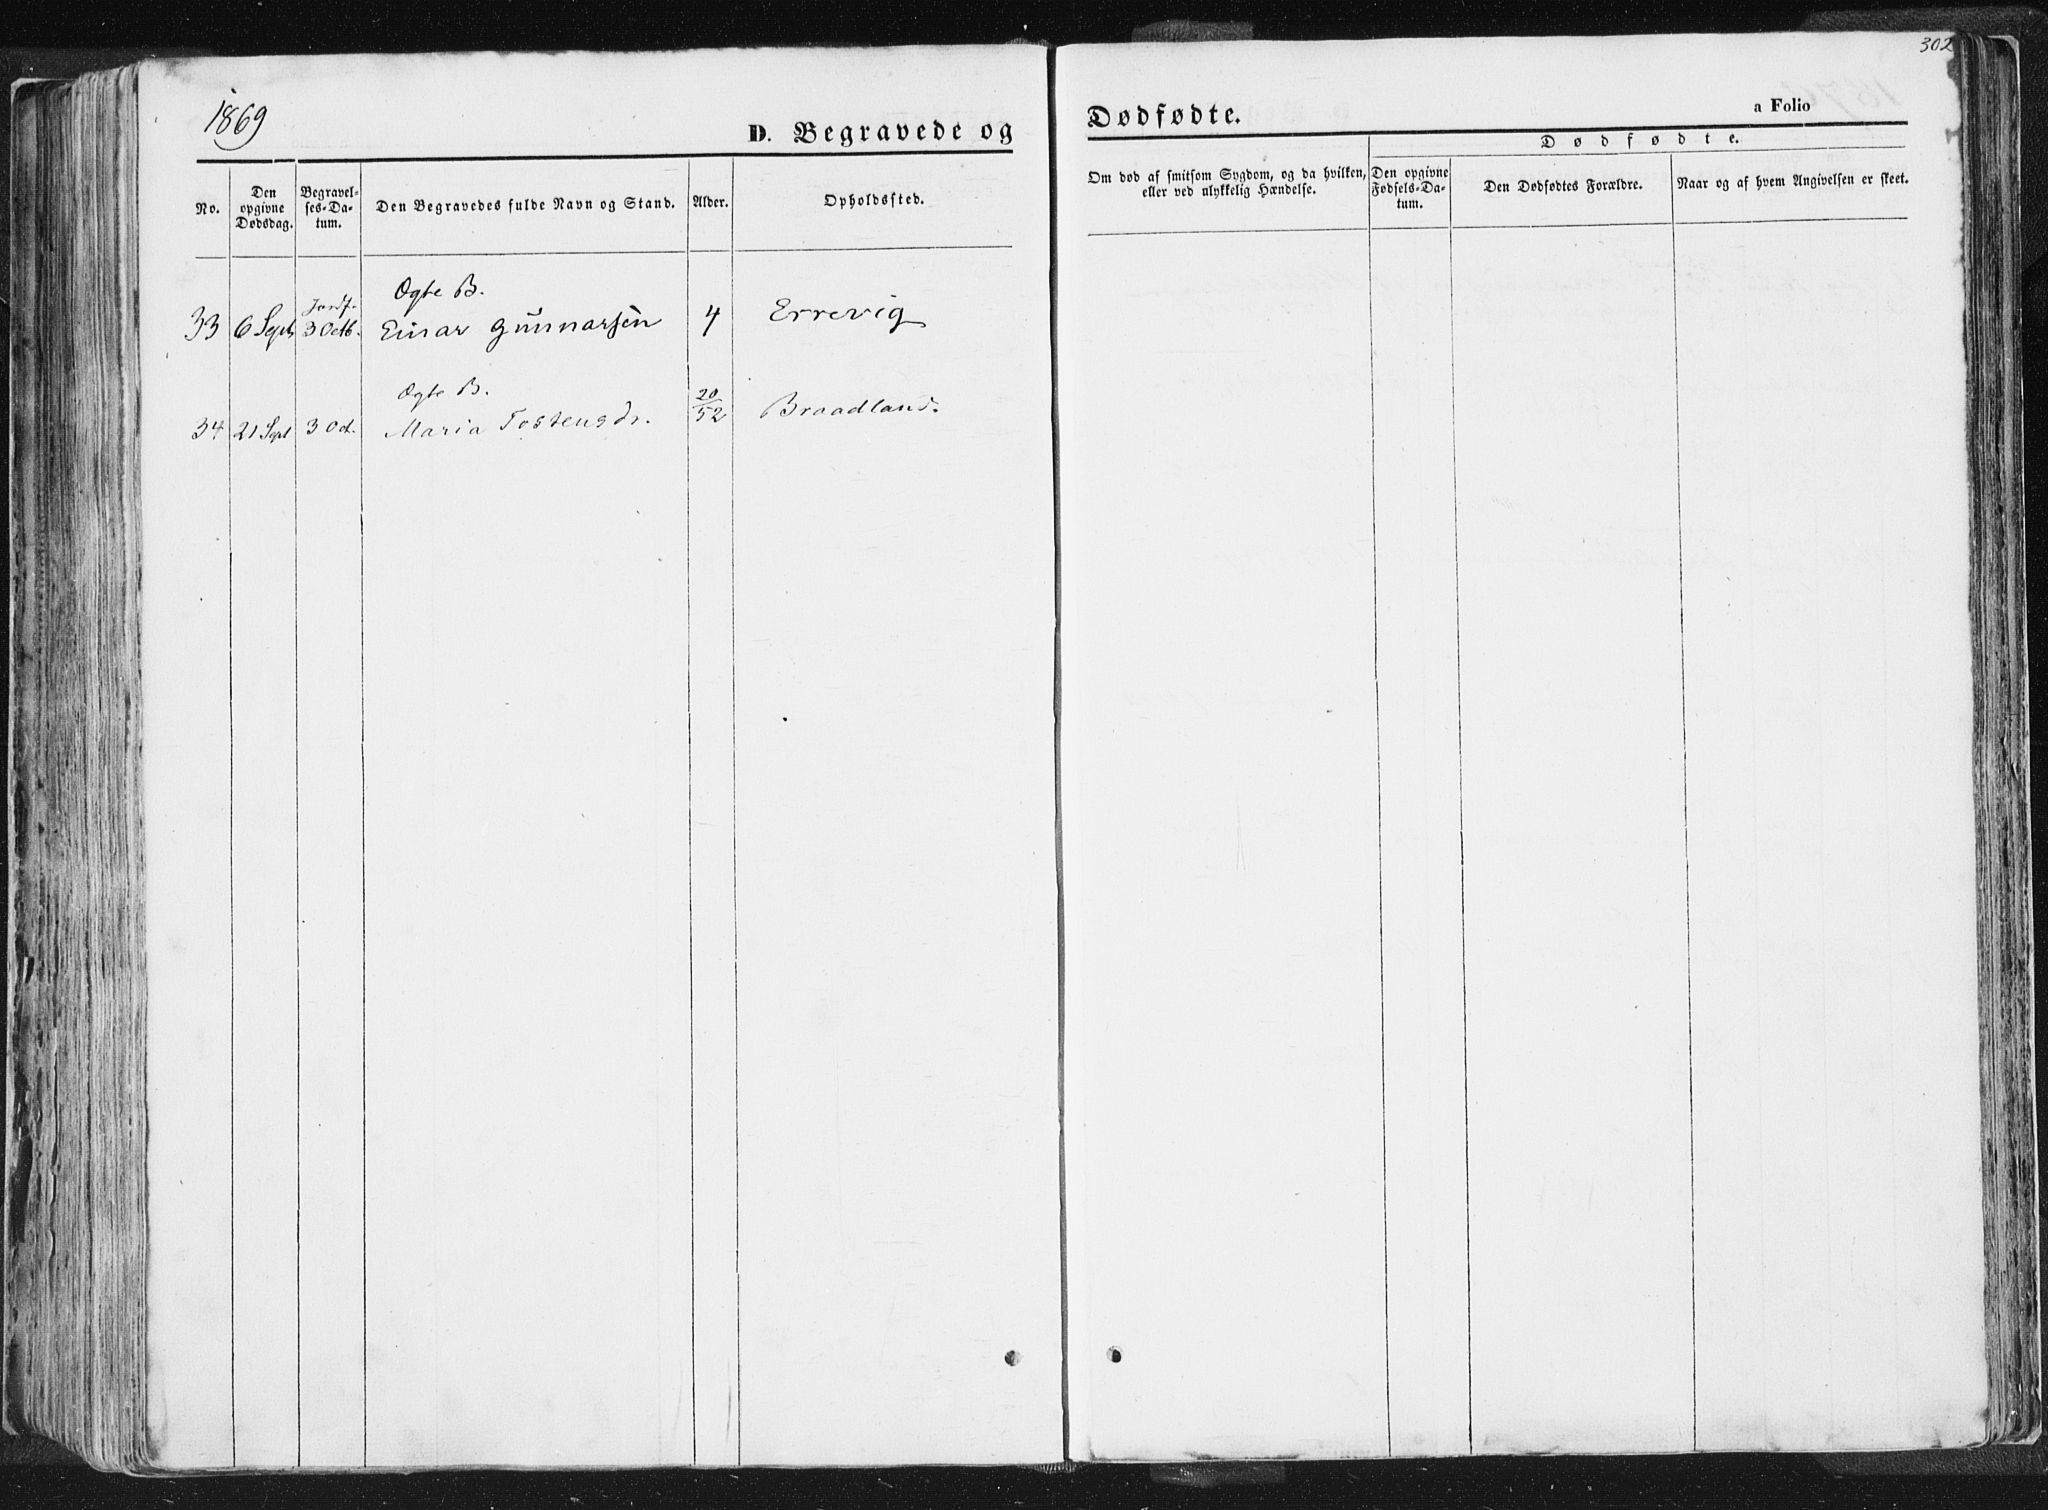 302
1869
D. Begravede og Dødfødte.
a Folio
No.
Den opgivne Dødsdag.
Begravelses-Datum.
Den Begravedes fulde Navn og Stand.
Alder.
Opholdssted.
Om død af smitsom Sygdom, og da hvilken, eller ved ulykkelig Hændelse.
Dødfødte.
Den opgivne Fødsels-Datum.
Den Dødfødtes Forældre.
Naar og af hvem Angivelsen er skeet.
Jordf. Ægte B.
33 6 Sept 3 Octb. Einar Gunnarsen 4 Errevig
Ægte B.
34 21 Sept 3 Oct. Maria Tostensdr. 20/52 Braadland.